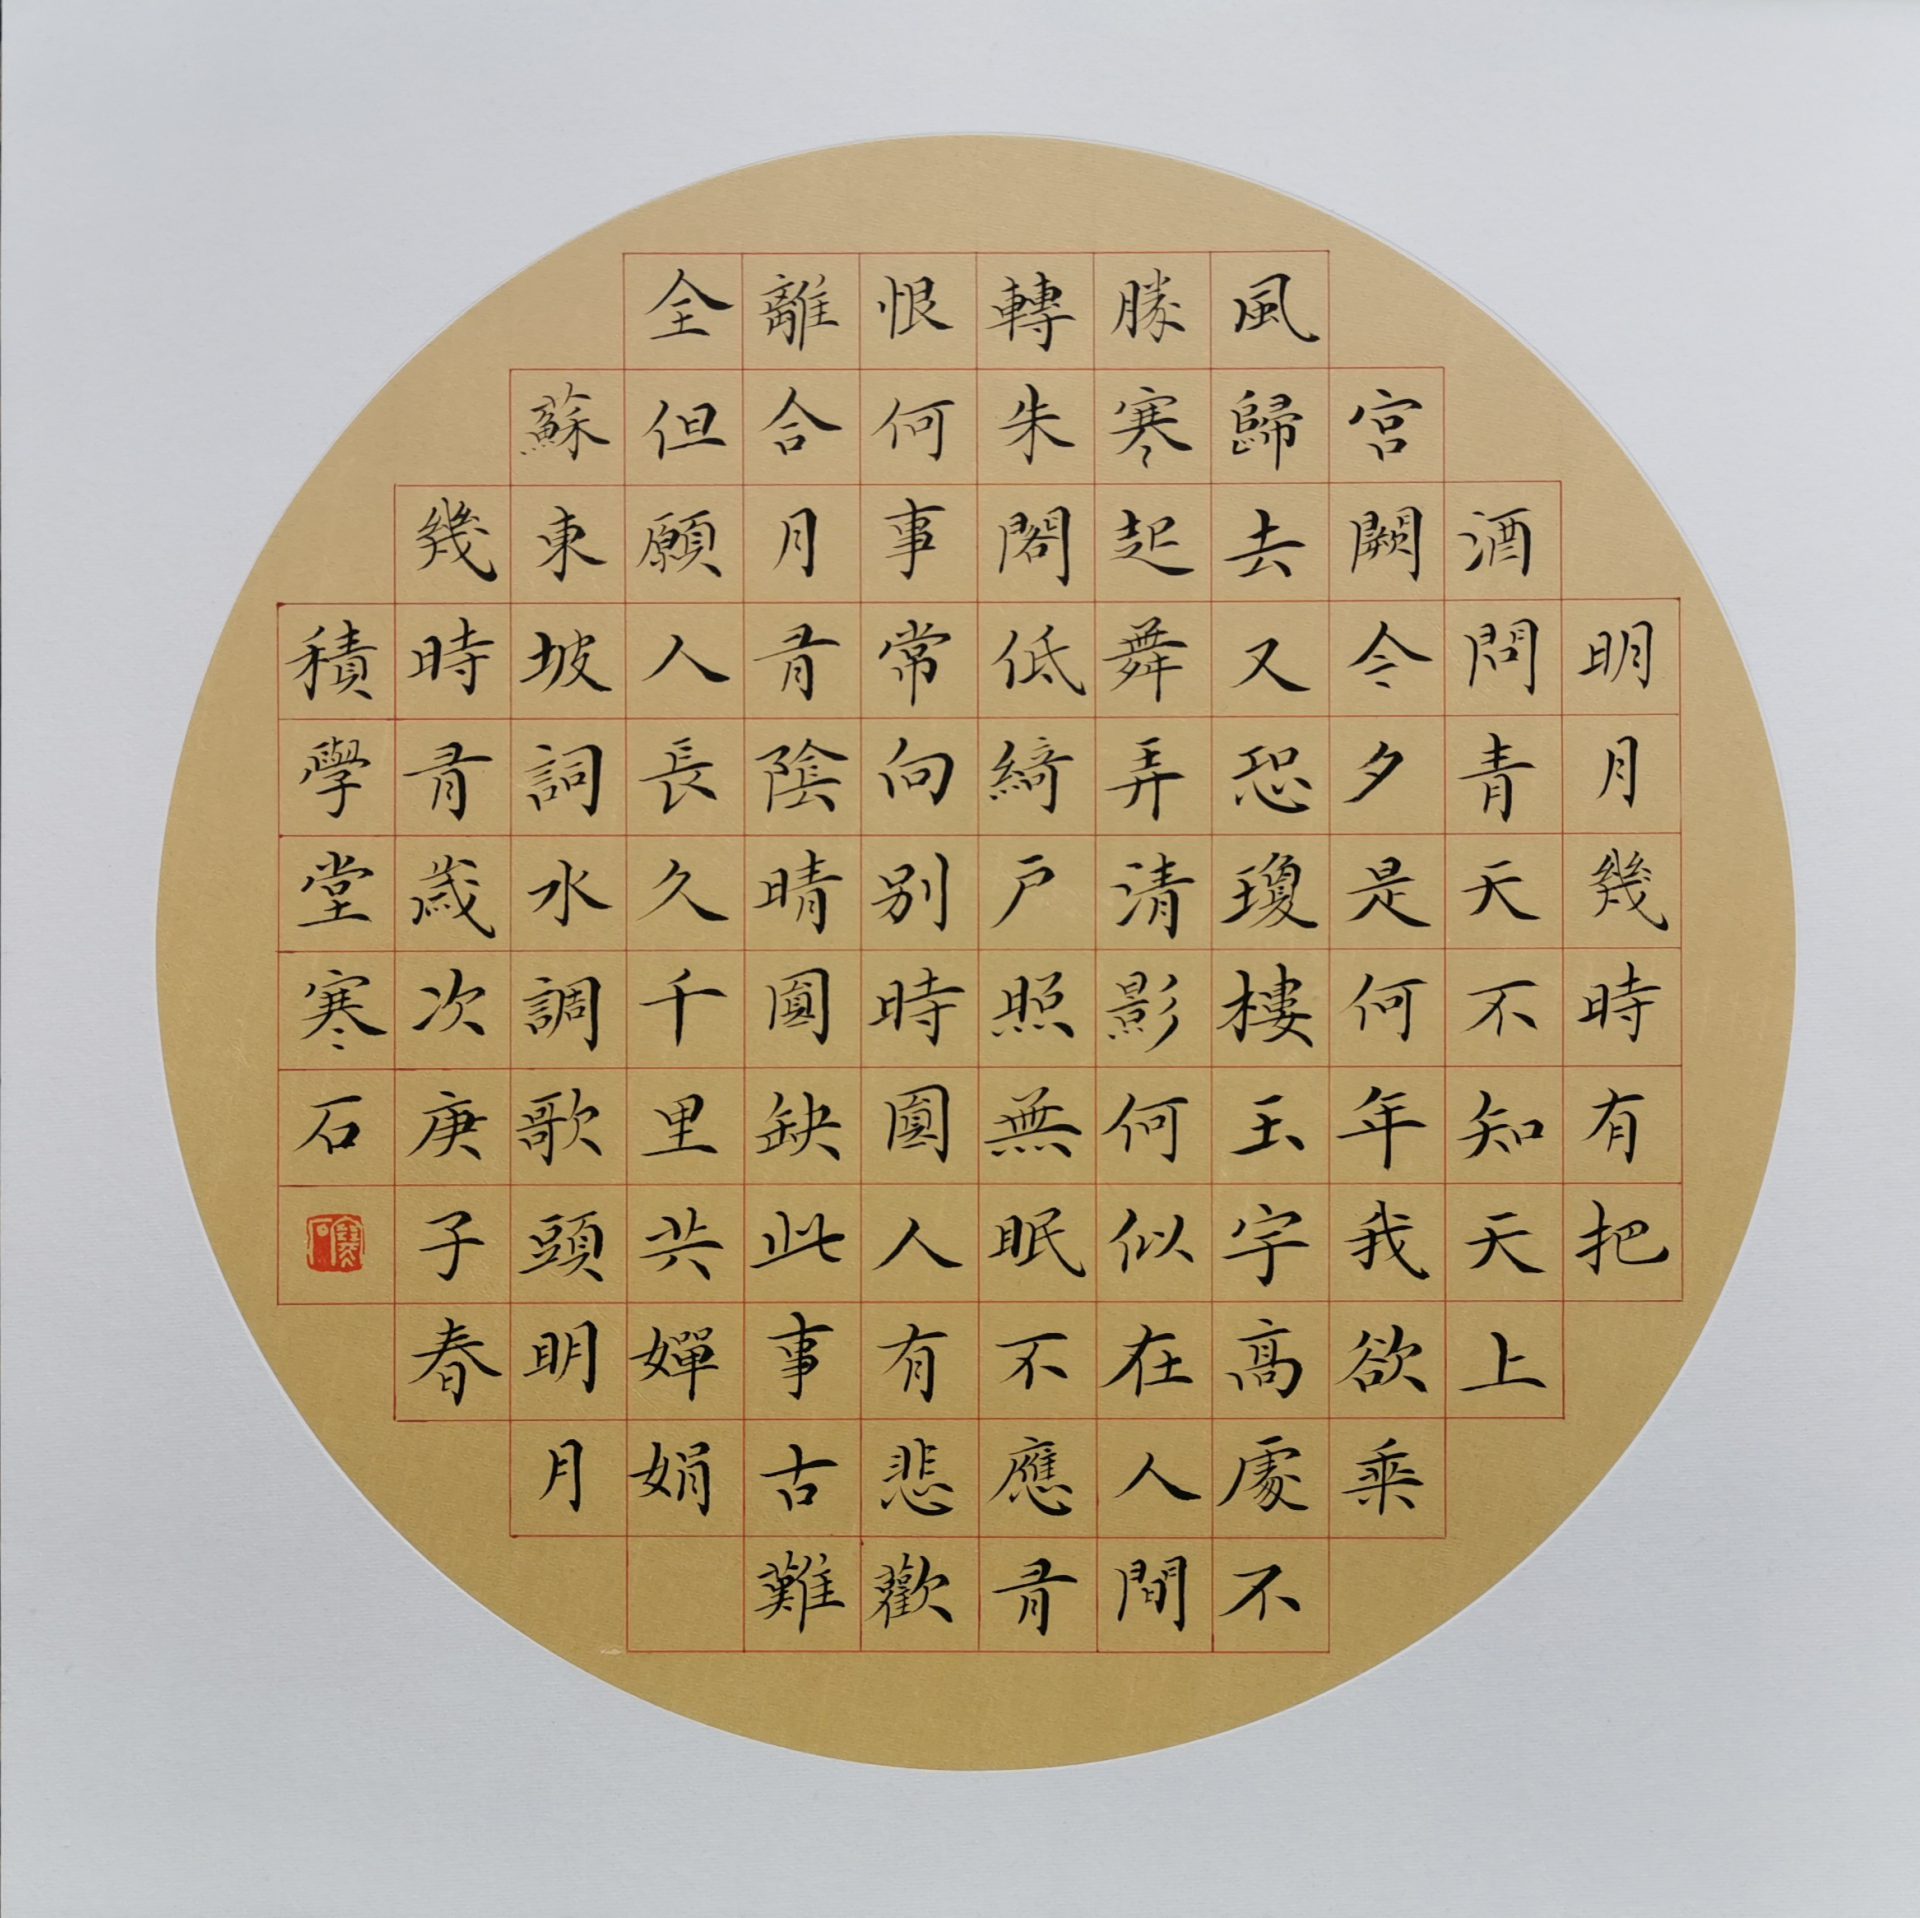 明月幾時有把
酒問青天不知天上
宮闕今夕是何年我欲乘
風歸去又恐瓊樓玉宇高處不
勝寒起舞弄清影何似在人間
轉朱閣低綺户照無眠不應有
恨何事常向别時圓人有悲歡
離合月有陰晴圓缺此事古難
全但願人長久千里共嬋娟
蘇東坡詞水調歌頭明月
幾時有歲次庚子春
積學堂寒石
寒石